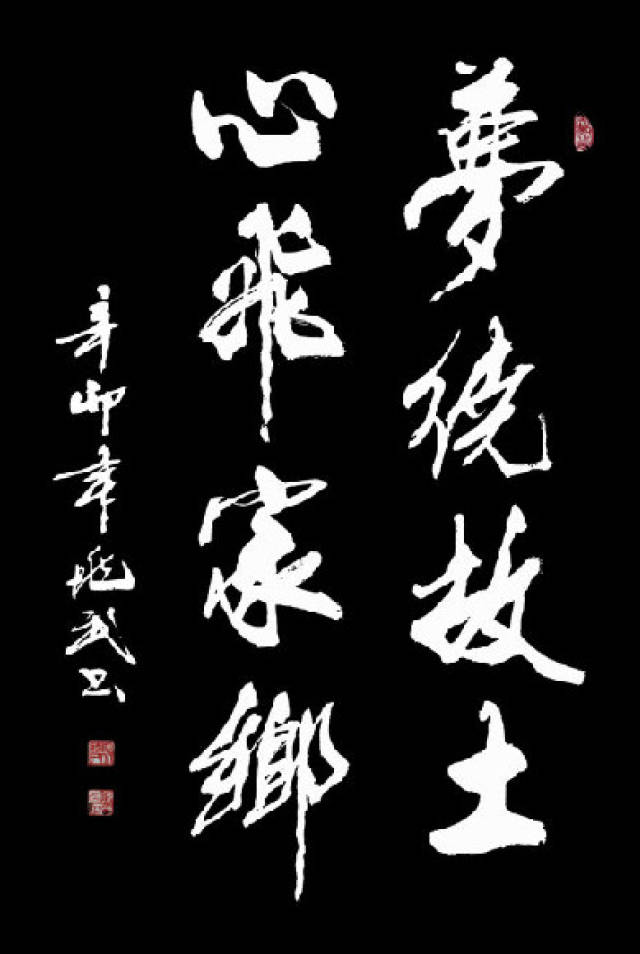 夢繞故土
心飛家鄉
辛卯年晓武书